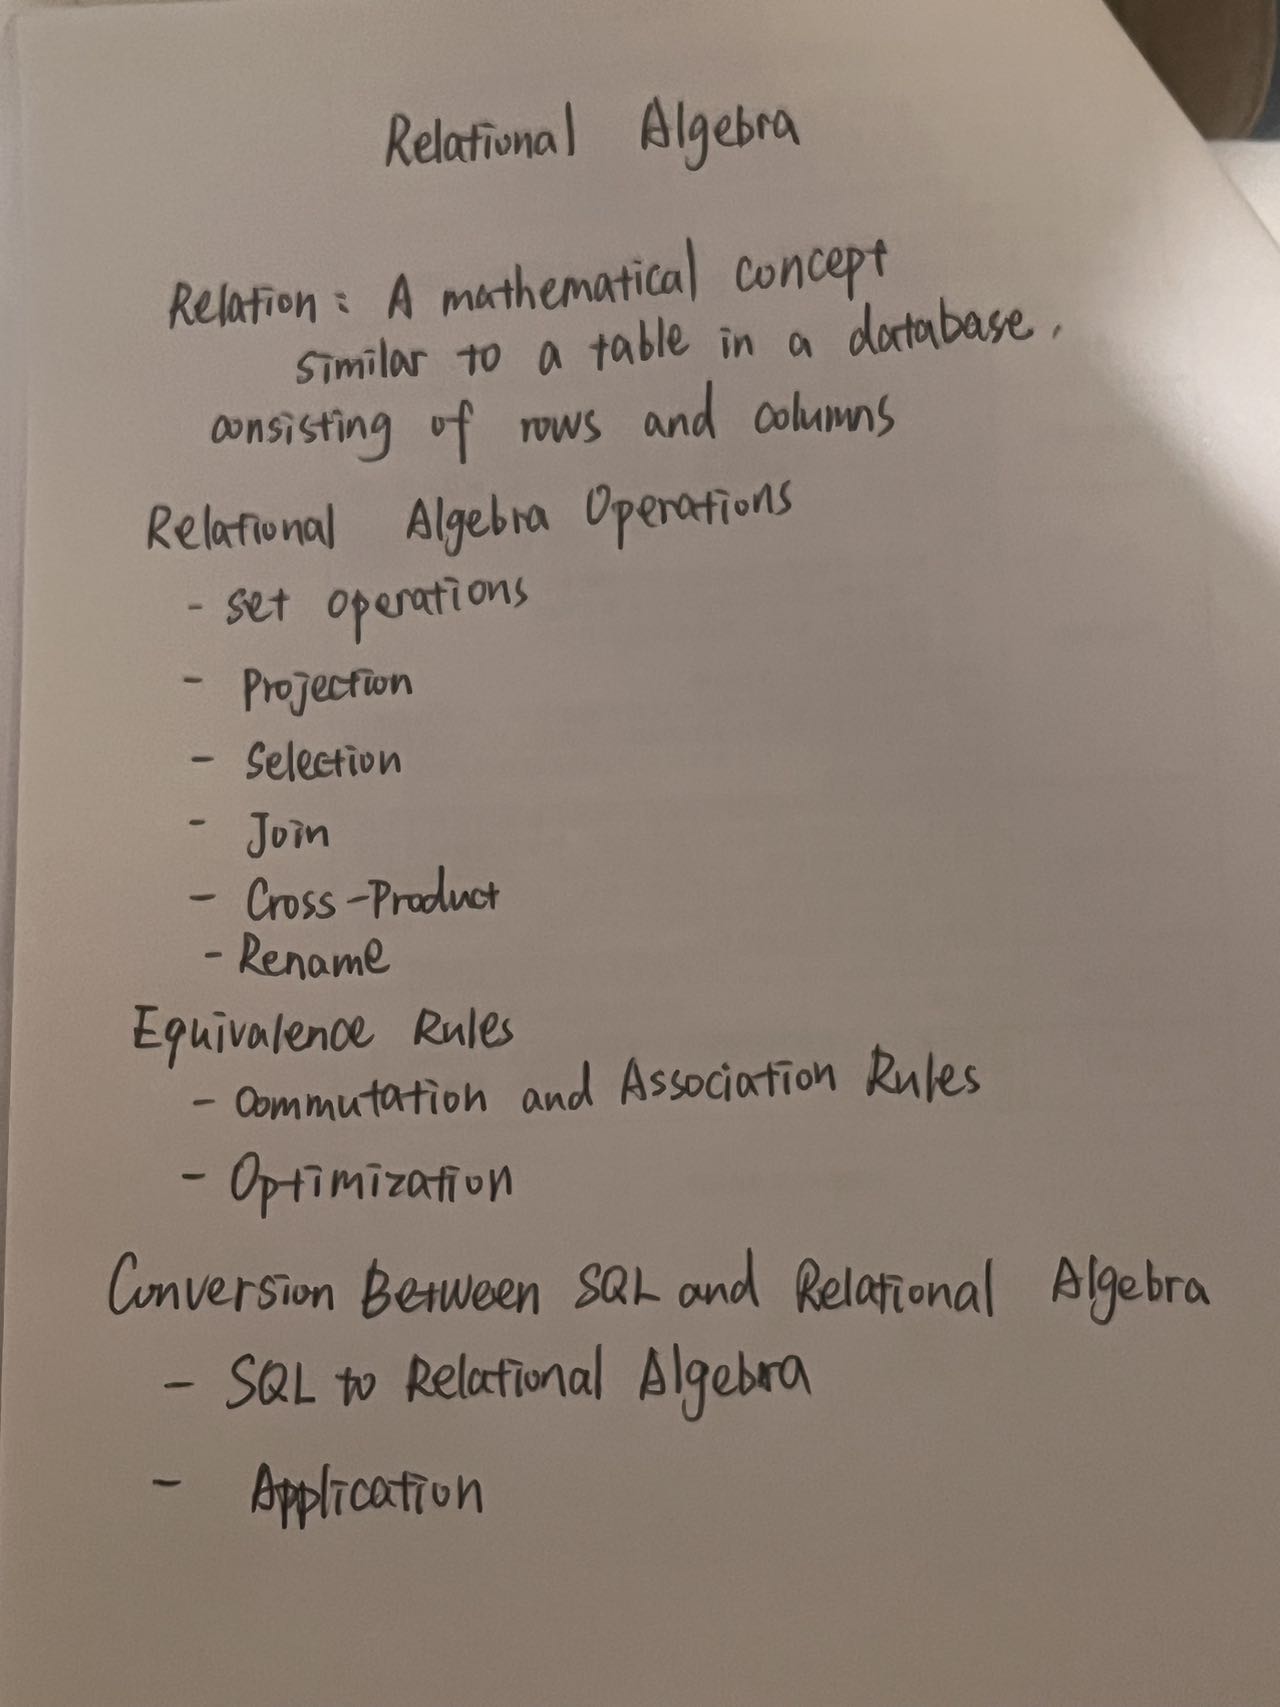 Relational Algebra
Relation: A mathematical concept
similar to a table in a database,
consisting of rows and columns
Relational Algebra Operations
- set operations
- Projection
- Selection
- Join
- Cross-Product
- Rename
Equivalence Rules
- Commutation and Association Rules
- Optimization
Conversion Between SQL and Relational Algebra
- SQL to Relational Algebra
- Application